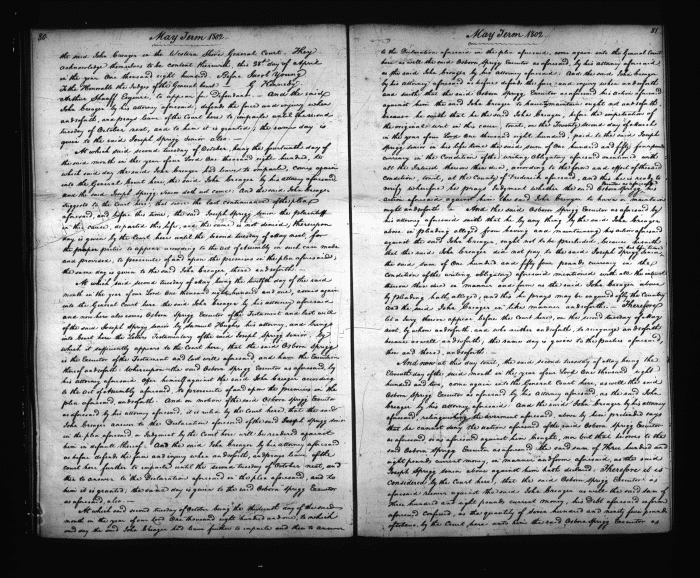 80.
May Term 1802.
the said John Creager in the Western Shore General Court. They
acknowledge themselves to be content therewith, this 28th day of April
in the year One thousand eight hundred. Before Jacob Young
To the Honorable the Judges of the General Court
Arthur Shaaff Esquire, to appear for Defendant. And the said
John Creager by his attorney aforesaid, defends the force and injury when
and so forth, and prays leave of the Court here to imparle until the second
tuesday of October next, and to him it is granted; the same day is
given to the said Joseph Sprigg senior also.
At which said second tuesday of October, being the fourteenth day of
the said month in the year of our Lord One thousand eight hundred, to
which said day the said John Creager had leave to imparle, comes again
into the General Court here, the said John Creager by his attorney aforesaid
and the said Joseph Sprigg senior doth not come: And the said John Creager
suggests to the Court here, that since the last continuance of the plea
aforesaid, and before this time, the said Joseph Sprigg senior the plaintiff
in this cause, departed this life, and the same is not denied, thereupon
day is given by the Court here until the second tuesday of May next, for
the proper parties to appear according to the act of Assembly in such case made
and provided, to prosecute of and upon the premises in the plea aforesaid,
the same day is given to the said John Creager, there and so forth.
At which said second tuesday of May, being the twelfth day of the said
month in the year of our Lord One thousand eight hundred and one, comes again
into the General Court here the said John Creager by his attorney aforesaid
and now here also comes Osborn Sprigg Executor of the Testament and last will
of the said Joseph Sprigg senior by Samuel Hughes his attorney, and brings
into Court here the Letters Testamentary of the said Joseph Sprigg senior, by
which it sufficiently appears to the Court here, that the said Osborn Sprigg
is the Executor of the Testament and last will aforesaid, and hath the Execution
thereof and so forth. Whereupon the said Osborn Sprigg Executor as aforesaid, by
his attorney aforesaid offers himself against the said John Creager according
to the act of Assembly aforesaid, to prosecute of and upon the premises in the
plea aforesaid, and so forth. And on motion of the said Osborn Sprigg Executor
as aforesaid by his attorney aforesaid, it is ruled by the Court here, that the said
John Creager answer to the Declaration aforesaid of the said Joseph Sprigg senior
in the plea aforesaid or Judgment by the Court here will be rendered against
him in default thereof. And the said John Creager by his attorney aforesaid
as before defends the force and injury when and so forth, and prays leave of the
Court here further to imparle until the second tuesday of October next, and
then to answer to the Declaration aforesaid in the plea aforesaid, and to
him it is granted; the same day is given to the said Osborn Sprigg Executor
as aforesaid, also.
At which said second tuesday of October being the thirteenth day of the said
month in the year of our Lord One thousand eight hundred and one, to which
said day the said John Creager had leave further to imparle and then to answer
81
May Term 1802.
to the Declaration aforesaid in the plea aforesaid, come again into the General Court
here as well the said Osborn Sprigg Executor as aforesaid, by his attorney aforesaid
as the said John Creager by his attorney aforesaid: And the said John Creager
by his attorney aforesaid as before defends the force and injury when and so forth
saith that the said Osborn Sprigg Executor as aforesaid his action aforesaid
against him the said John Creager to have or maintain ought not and so forth
because he saith that he the said John Creager, before the impetration of
the original writ in this cause, to wit, on the twenty second day of March
in the year of our Lord One thousand eight hundred, paid to the said Joseph
Sprigg senior in his life time the said sum of One hundred and fifty four pounds
currency in the Condition of the writing Obligatory aforesaid mentioned with
all the Interest thereon then due, according to the form and effect of the said
Condition, to wit, at the County of Frederick aforesaid, and this he is ready to
verify wherefore he prays Judgment whether the said Osborn Sprigg Executor as aforesaid his
action aforesaid against him the said John Creager to have or maintain
ought and so forth. And the said Osborn Sprigg Executor as aforesaid by
his attorney aforesaid saith that he by any thing by the said John Creager
above in pleading alleged from having and maintaining his action aforesaid
against the said John Creager, ought not to be precluded, because he saith
that the said John Creager did not pay to the said Joseph Sprigg senior in his life time
the said sum of One hundred and fifty four pounds currency in the
Condition of the writing obligatory aforesaid mentioned with all the interest
thereon then due in manner and form as the said John Creager above
by pleading hath alleged; and this he prays may be enquired of by the Country
And the said John Creager in like manner and so forth. Therefore
let a Jury thereon appear before the Court here, on the second tuesday of May
next, by whom and so forth, and who neither and so forth, to recognize and so forth
because as well and so forth, the same day is given to the parties aforesaid,
then and there, and so forth.
And now at this day to wit, the said second tuesday of May being the
Eleventh day of the said month in the year of our Lord One thousand eight
hundred and two, come again into the General Court here, as well the said
Osborn Sprigg Executor as aforesaid by his attorney aforesaid, as the said John
Creager by his attorney aforesaid: And the said John Creager by his attorney
aforesaid, relinquishing the averment aforesaid, above by him pretended says
that he cannot deny the action aforesaid of the said Osborn Sprigg Executor
as aforesaid as is aforesaid against him brought, nor but that he owes to the
said Osborn Sprigg Executor as aforesaid the said sum of Three hundred and
eight pounds current money, in manner and form aforesaid, as the said
Joseph Sprigg senior above against him hath declared: Therefore it is
Considered by the Court here, that the said Osborn Sprigg Executor as
aforesaid recover against the said John Creager as well the said sum of
Three hundred and eight pounds current money, his Debt aforesaid in form
aforesaid confessed, as the quantity of seven hundred and ninety four pounds
of tobacco, by the Court here unto him the said Osborn Sprigg Executor as